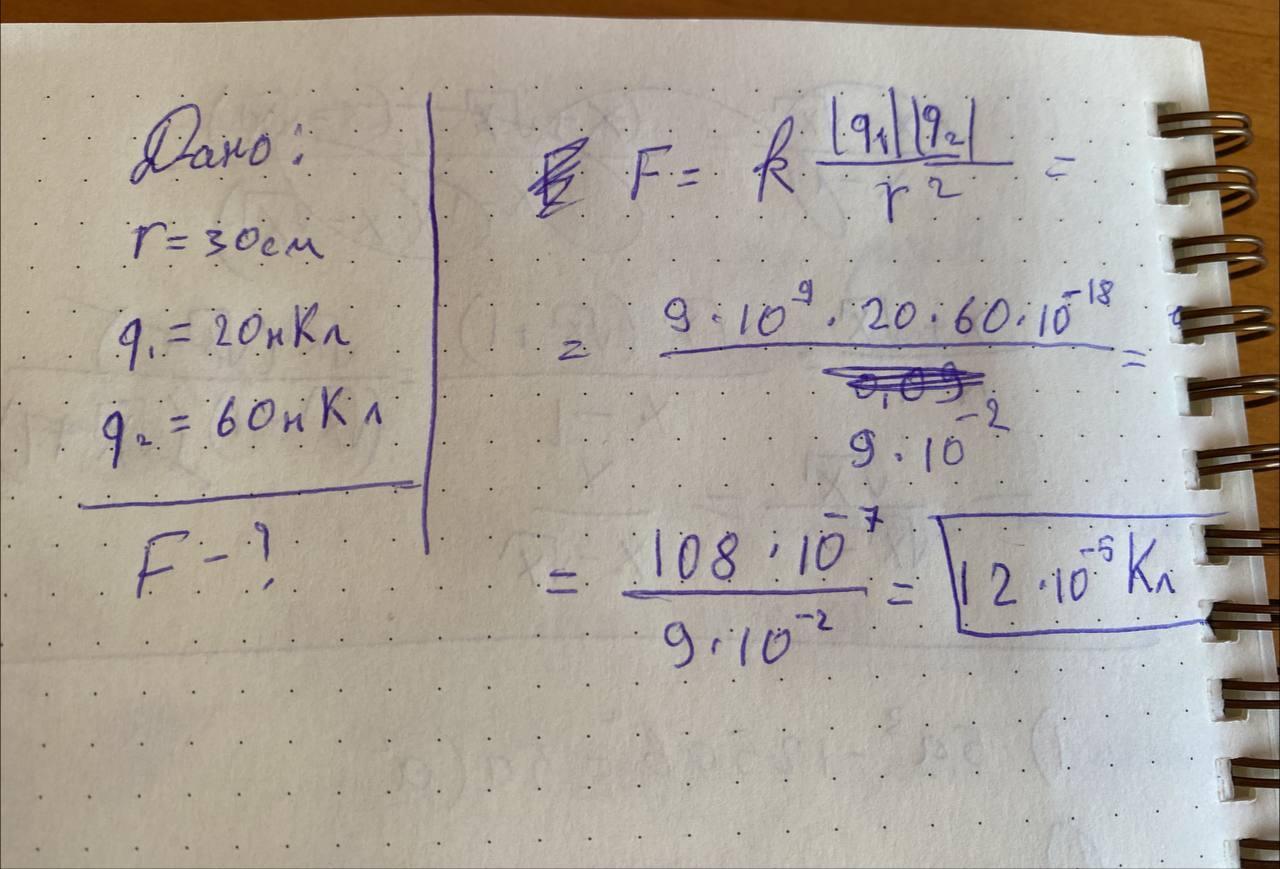 Дано:
r = 30см
q₁ = 20нКл
q₂ = 60нКл
F - ?
F = k |q₁||q₂| / r² =
= 9 · 10⁹ · 20 · 60 · 10⁻¹⁸ / 9 · 10⁻² =
= 108 · 10⁻⁷ / 9 · 10⁻² = 12 · 10⁻⁵ Кл